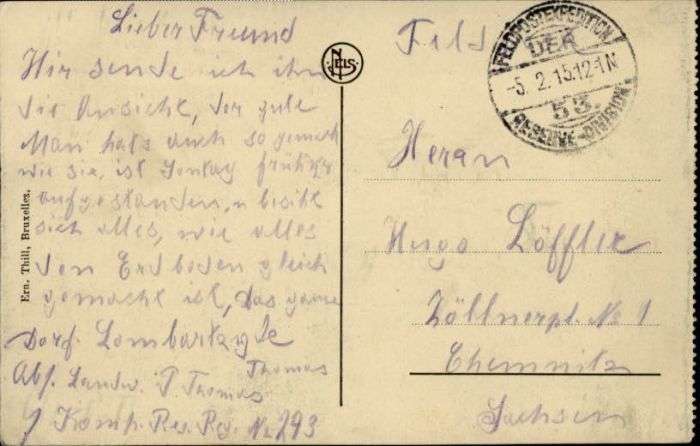 Lieber Freund
Hir sende ich ihn
die Ansicht, der gute
Man hats auch so gemacht
wie sie, ist Sontag früher
aufgestanden, u besiht
sich alles, wie alles
den Erdboden gleich
gemacht ist, das ganze
Dorf. Lombartzyde
Thomas
Abs. Landw. P. Thomas
7 Komp. Res. Rg. No 293
Ern. Thill, Bruxelles.
NELS
Feld
FELDPOSTEXPEDITION
DER
-5.2.15.12-1N
53.
RESERVE-DIVISION
Herrn
Hugo Löffler
Zöllnerpl. No 1
Chemnitz
Sachsen